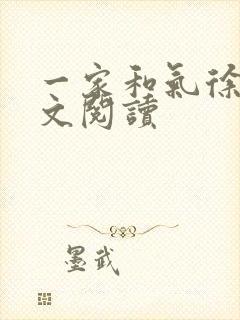 一家和氣徐
文閱讀
墨武